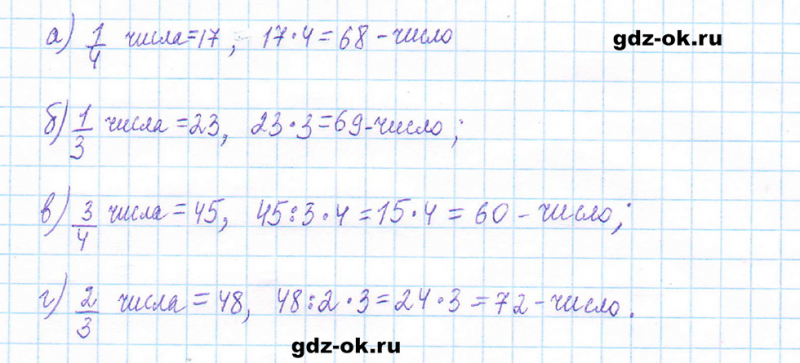 а) 1/4 числа=17, 17·4=68-число
gdz-ok.ru
б) 1/3 числа=23, 23·3=69-число;
в) 3/4 числа=45, 45:3·4=15·4=60-число;
г) 2/3 числа=48, 48:2·3=24·3=72-число.
gdz-ok.ru